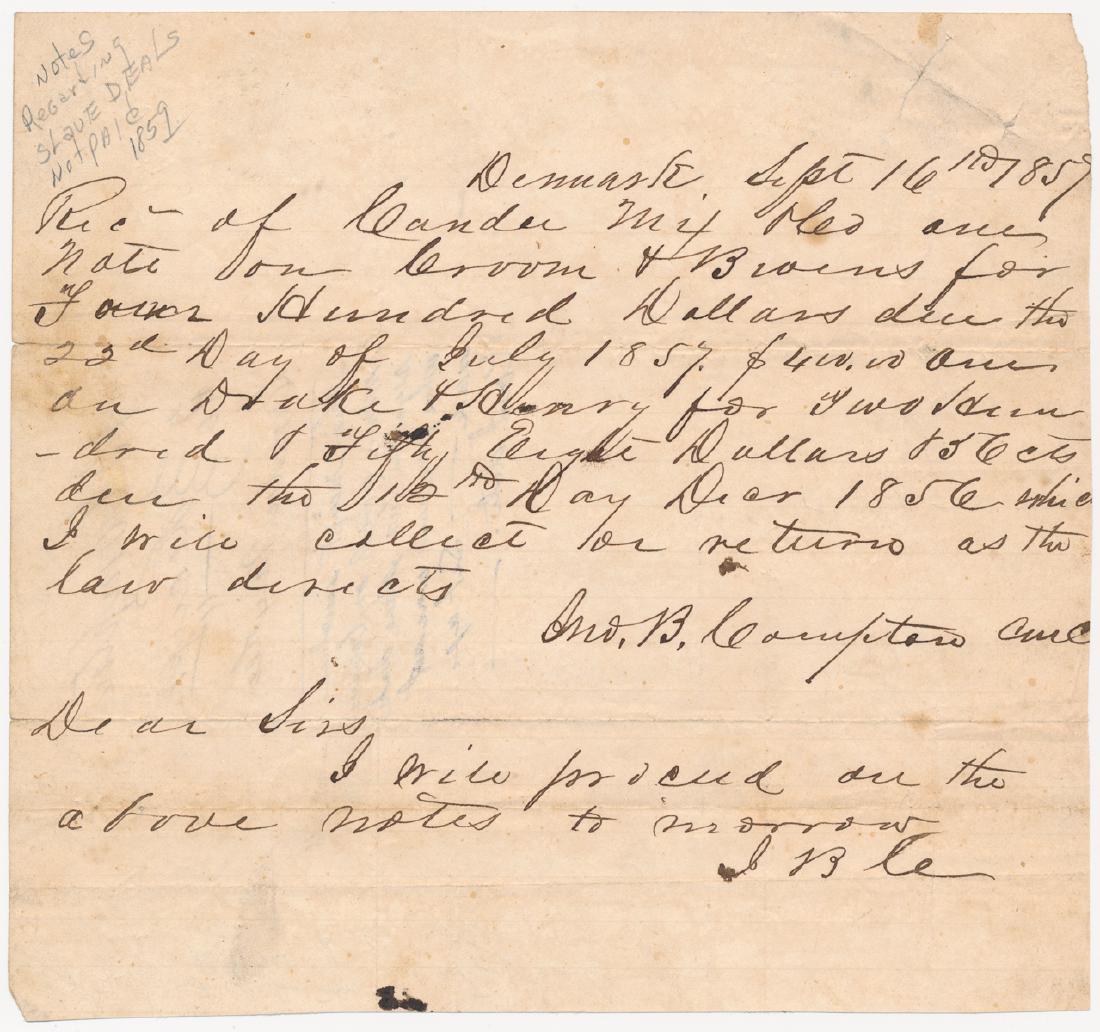 Notes
Regarding
Slave DEALS
Not PAid
1859
Denmark, Sept 16th 1857
Rec of Candee Mix & Co one
Note on Croom & Bivens for
Four Hundred Dollars due the
22d Day of July 1857. $400.00 one
on Drake & Henry for Two Hun
-dred & Fifty Eight Dollars & 36 cts
due the 12th Day Decr 1856 which
I will collect or return as the
law directs
Jno. B. Compton
Dear Sirs,
I will proceed on the
above notes to morrow
J B C